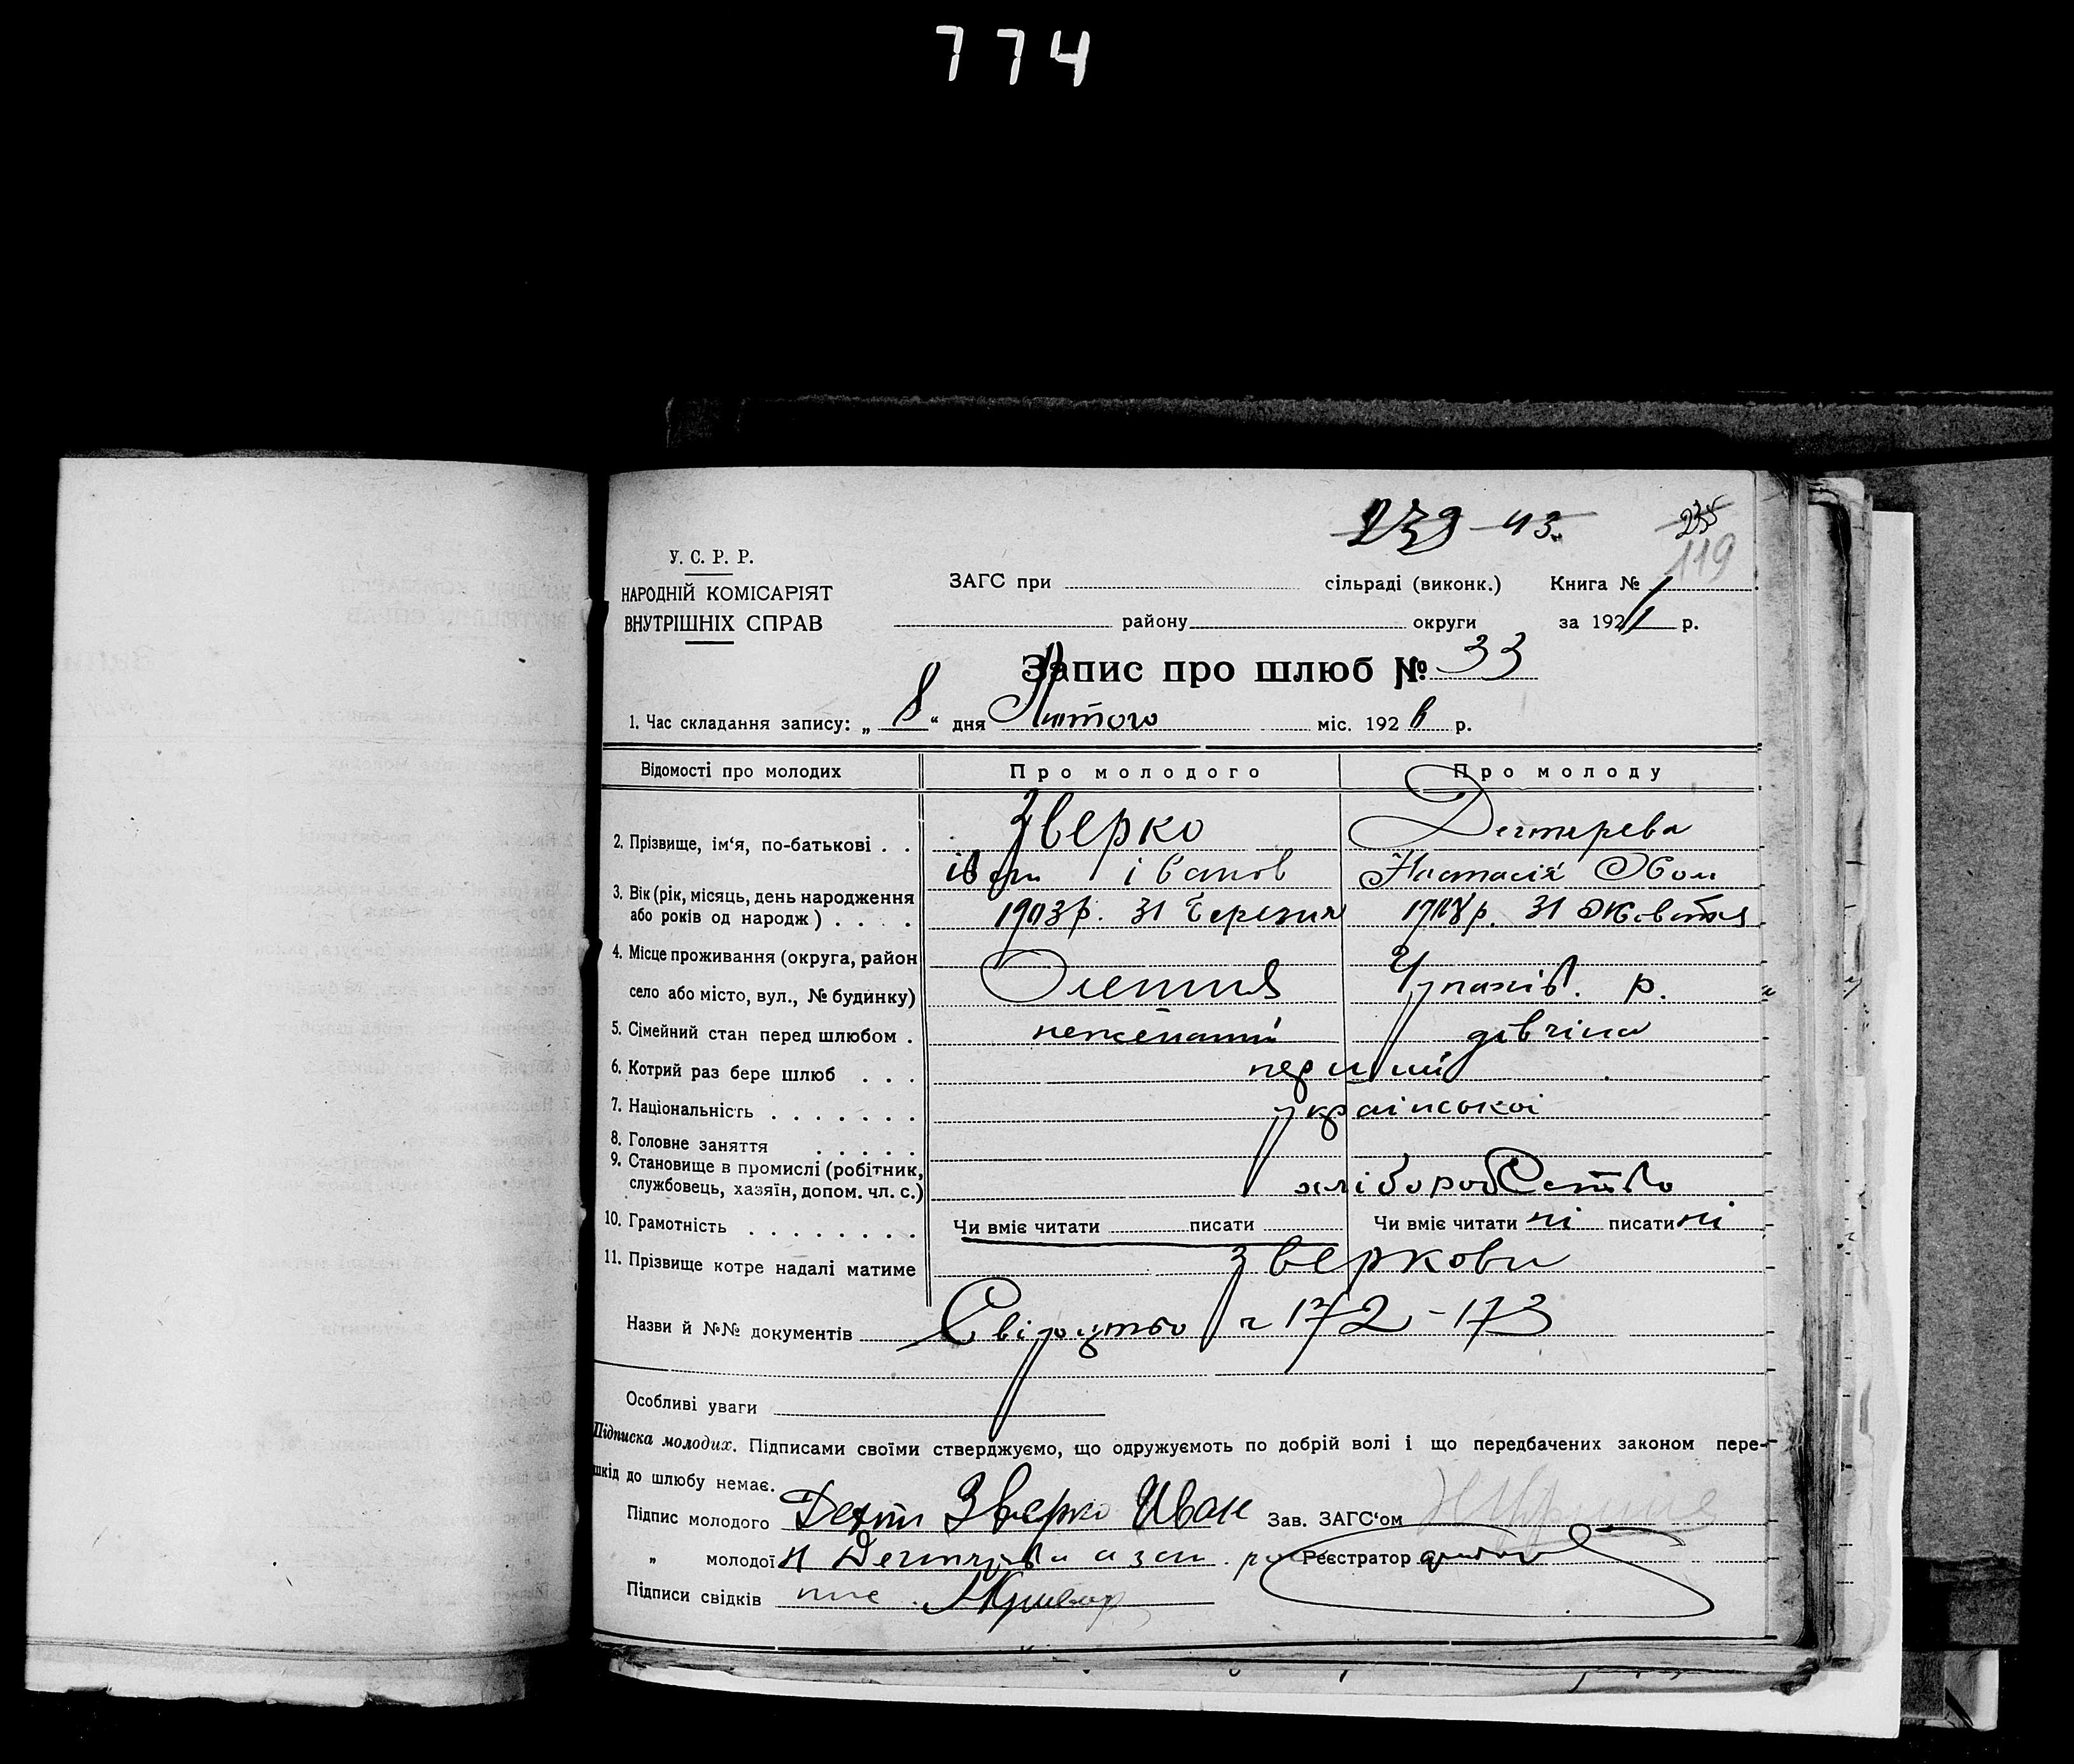 774
239-43.
235
119
У. С. Р. Р.
НАРОДНІЙ КОМІСАРІЯТ
ВНУТРІШНІХ СПРАВ
ЗАГС при сільраді (виконк.) Книга № 1
району округи за 192 р.
Запис про шлюб № 33
1. Час складання запису: „ 8 “ дня Лютого міс. 192 р.
Відомості про молодих Про молодого Про молоду
2. Прізвище, ім‘я, по-батькові . . Зверко Дегтярева
Іван Іванов Настасія
3. Вік (рік, місяць, день народження
або років од народж ) . . . . 1903р. 31 Березня 31 Жовтня
4. Місце проживання (округа, район
село або місто, вул., № будинку) р.
5. Сімейний стан перед шлюбом . неженатий дівчина
6. Котрий раз бере шлюб . . . перший
7. Національність . . . . . . . української
8. Головне заняття . . . . .
9. Становище в промислі (робітник,
службовець, хазяїн, допом. чл. с.) хліборобство
10. Грамотність . . . . . . . Чи вміє читати писати Чи вміє читати ні писати ні
11. Прізвище котре надалі матиме Зверкови
Назви й №№ документів Свідоцтво 172-173
Особливі уваги
Підписка молодих. Підписами своїми стверджуємо, що одружуємоть по добрій волі і що передбачених законом пере-
шкід до шлюбу немає.
Підпис молодого Зверко Иван Зав. ЗАГС‘ом
„ молодої Реєстратор
Підписи свідків